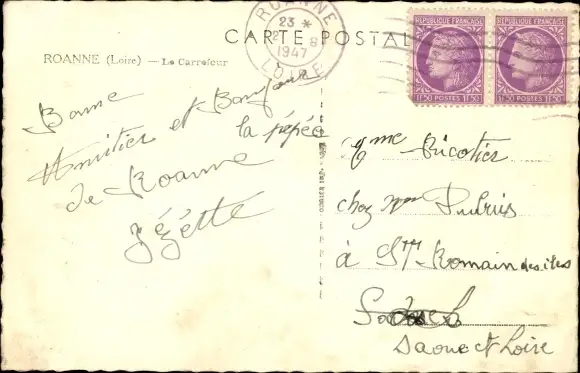 CARTE POSTALE
ROANNE (Loire) — Le Carrefour
ROANNE
23 *
2 8
1947
LOIRE
REPUBLIQUE FRANÇAISE
1F50 POSTES 1F50
REPUBLIQUE FRANÇAISE
1F50 POSTES 1F50
Bonne
Amitier et Bonjour
la pépée
de Roanne
Zézette
Mme Ricotier
chez Mme
à St Romain des iles
Saone et Loire